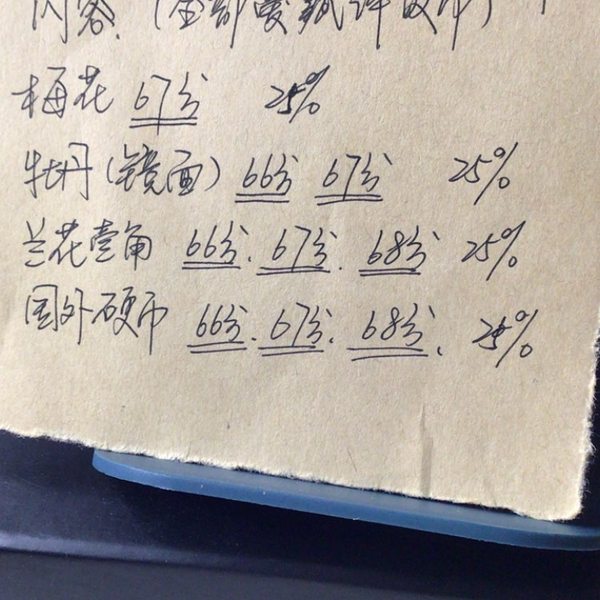 内容.(全部爱藏评级币)
梅花 67分 25%
牡丹(镜面) 66分 67分 25%
兰花壹角 66分.67分.68分 25%
国外硬币 66分.67分.68分、25%